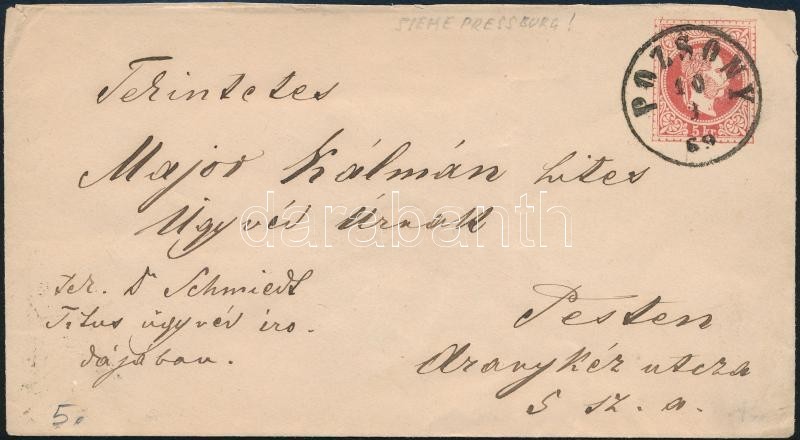 SIEHE PRESSBURG!
POZSONY
10
3
69
5 kr.
Terintetes
Major Kálmán hites
Ügyvéd Úrnak
darabanth
Ter. Dr Schmiedt
Titus ügyvéd iro-
dájában.
Pesten
Aranykéz utcza
5 sz. a.
50